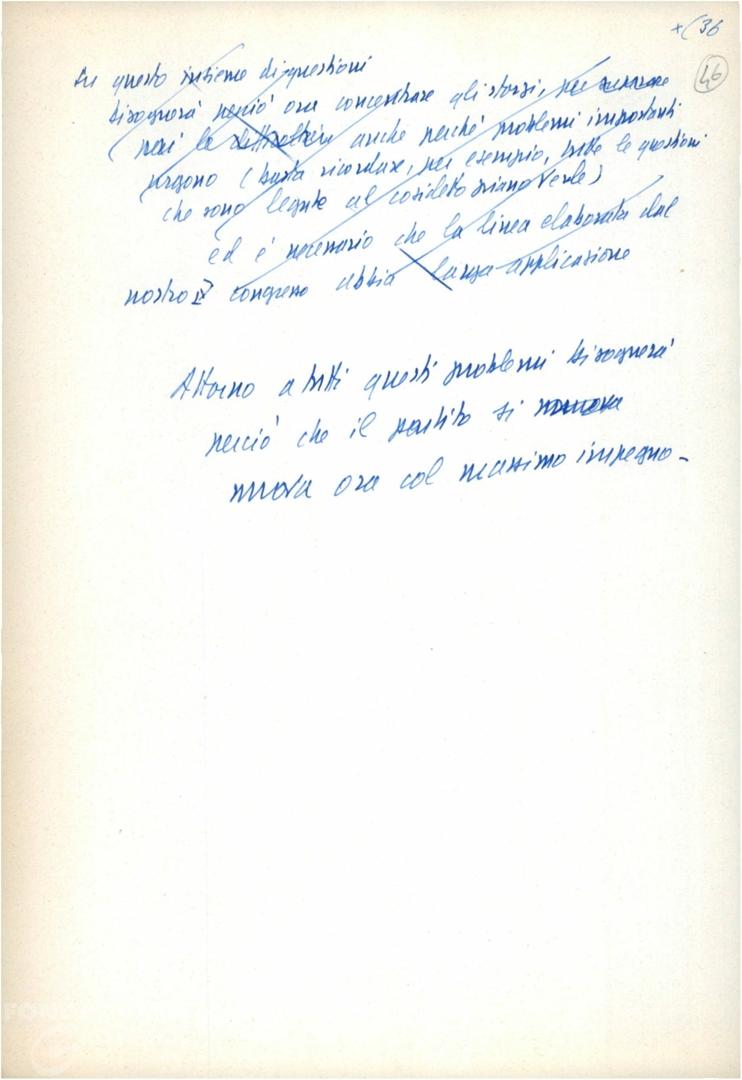 *(36
46
Su questo insieme di questioni
bisognerà perciò ora concentrare gli sforzi,
(però le anche perché problemi importanti
urgono (basta ricordare, per esempio, tutte le questioni
che sono legate al cosidetto piano Verde)
ed è necessario che la linea elaborata dal
nostro congresso abbia larga applicazione
Attorno a tutti questi problemi bisognerà
perciò che il partito si
muova ora col massimo impegno-